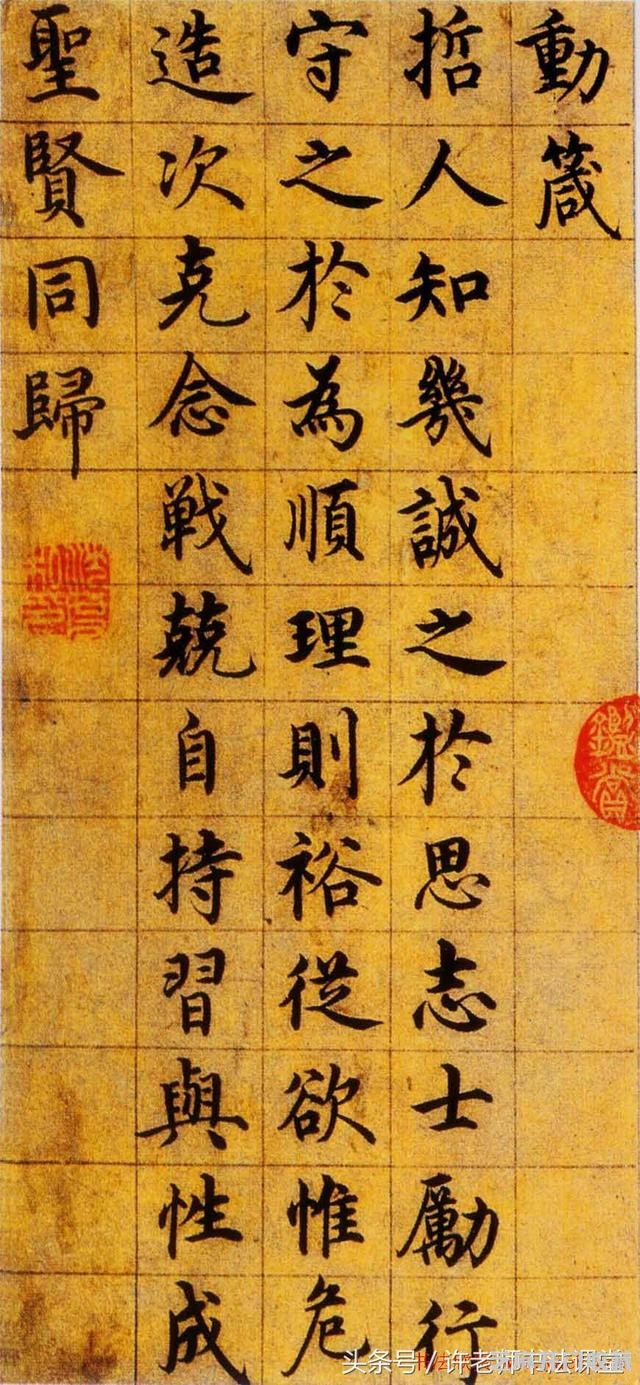 動箴
哲人知幾誠之於思志士勵行
守之於為順理則裕從欲惟危
造次克念戰兢自持習與性成
聖賢同歸
鑑賞
头条号/许老师书法课堂